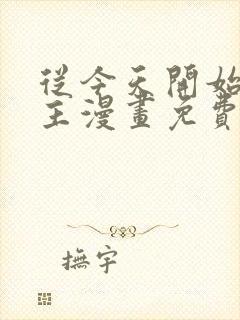 從今天開始
主漫畫免費
撫宇